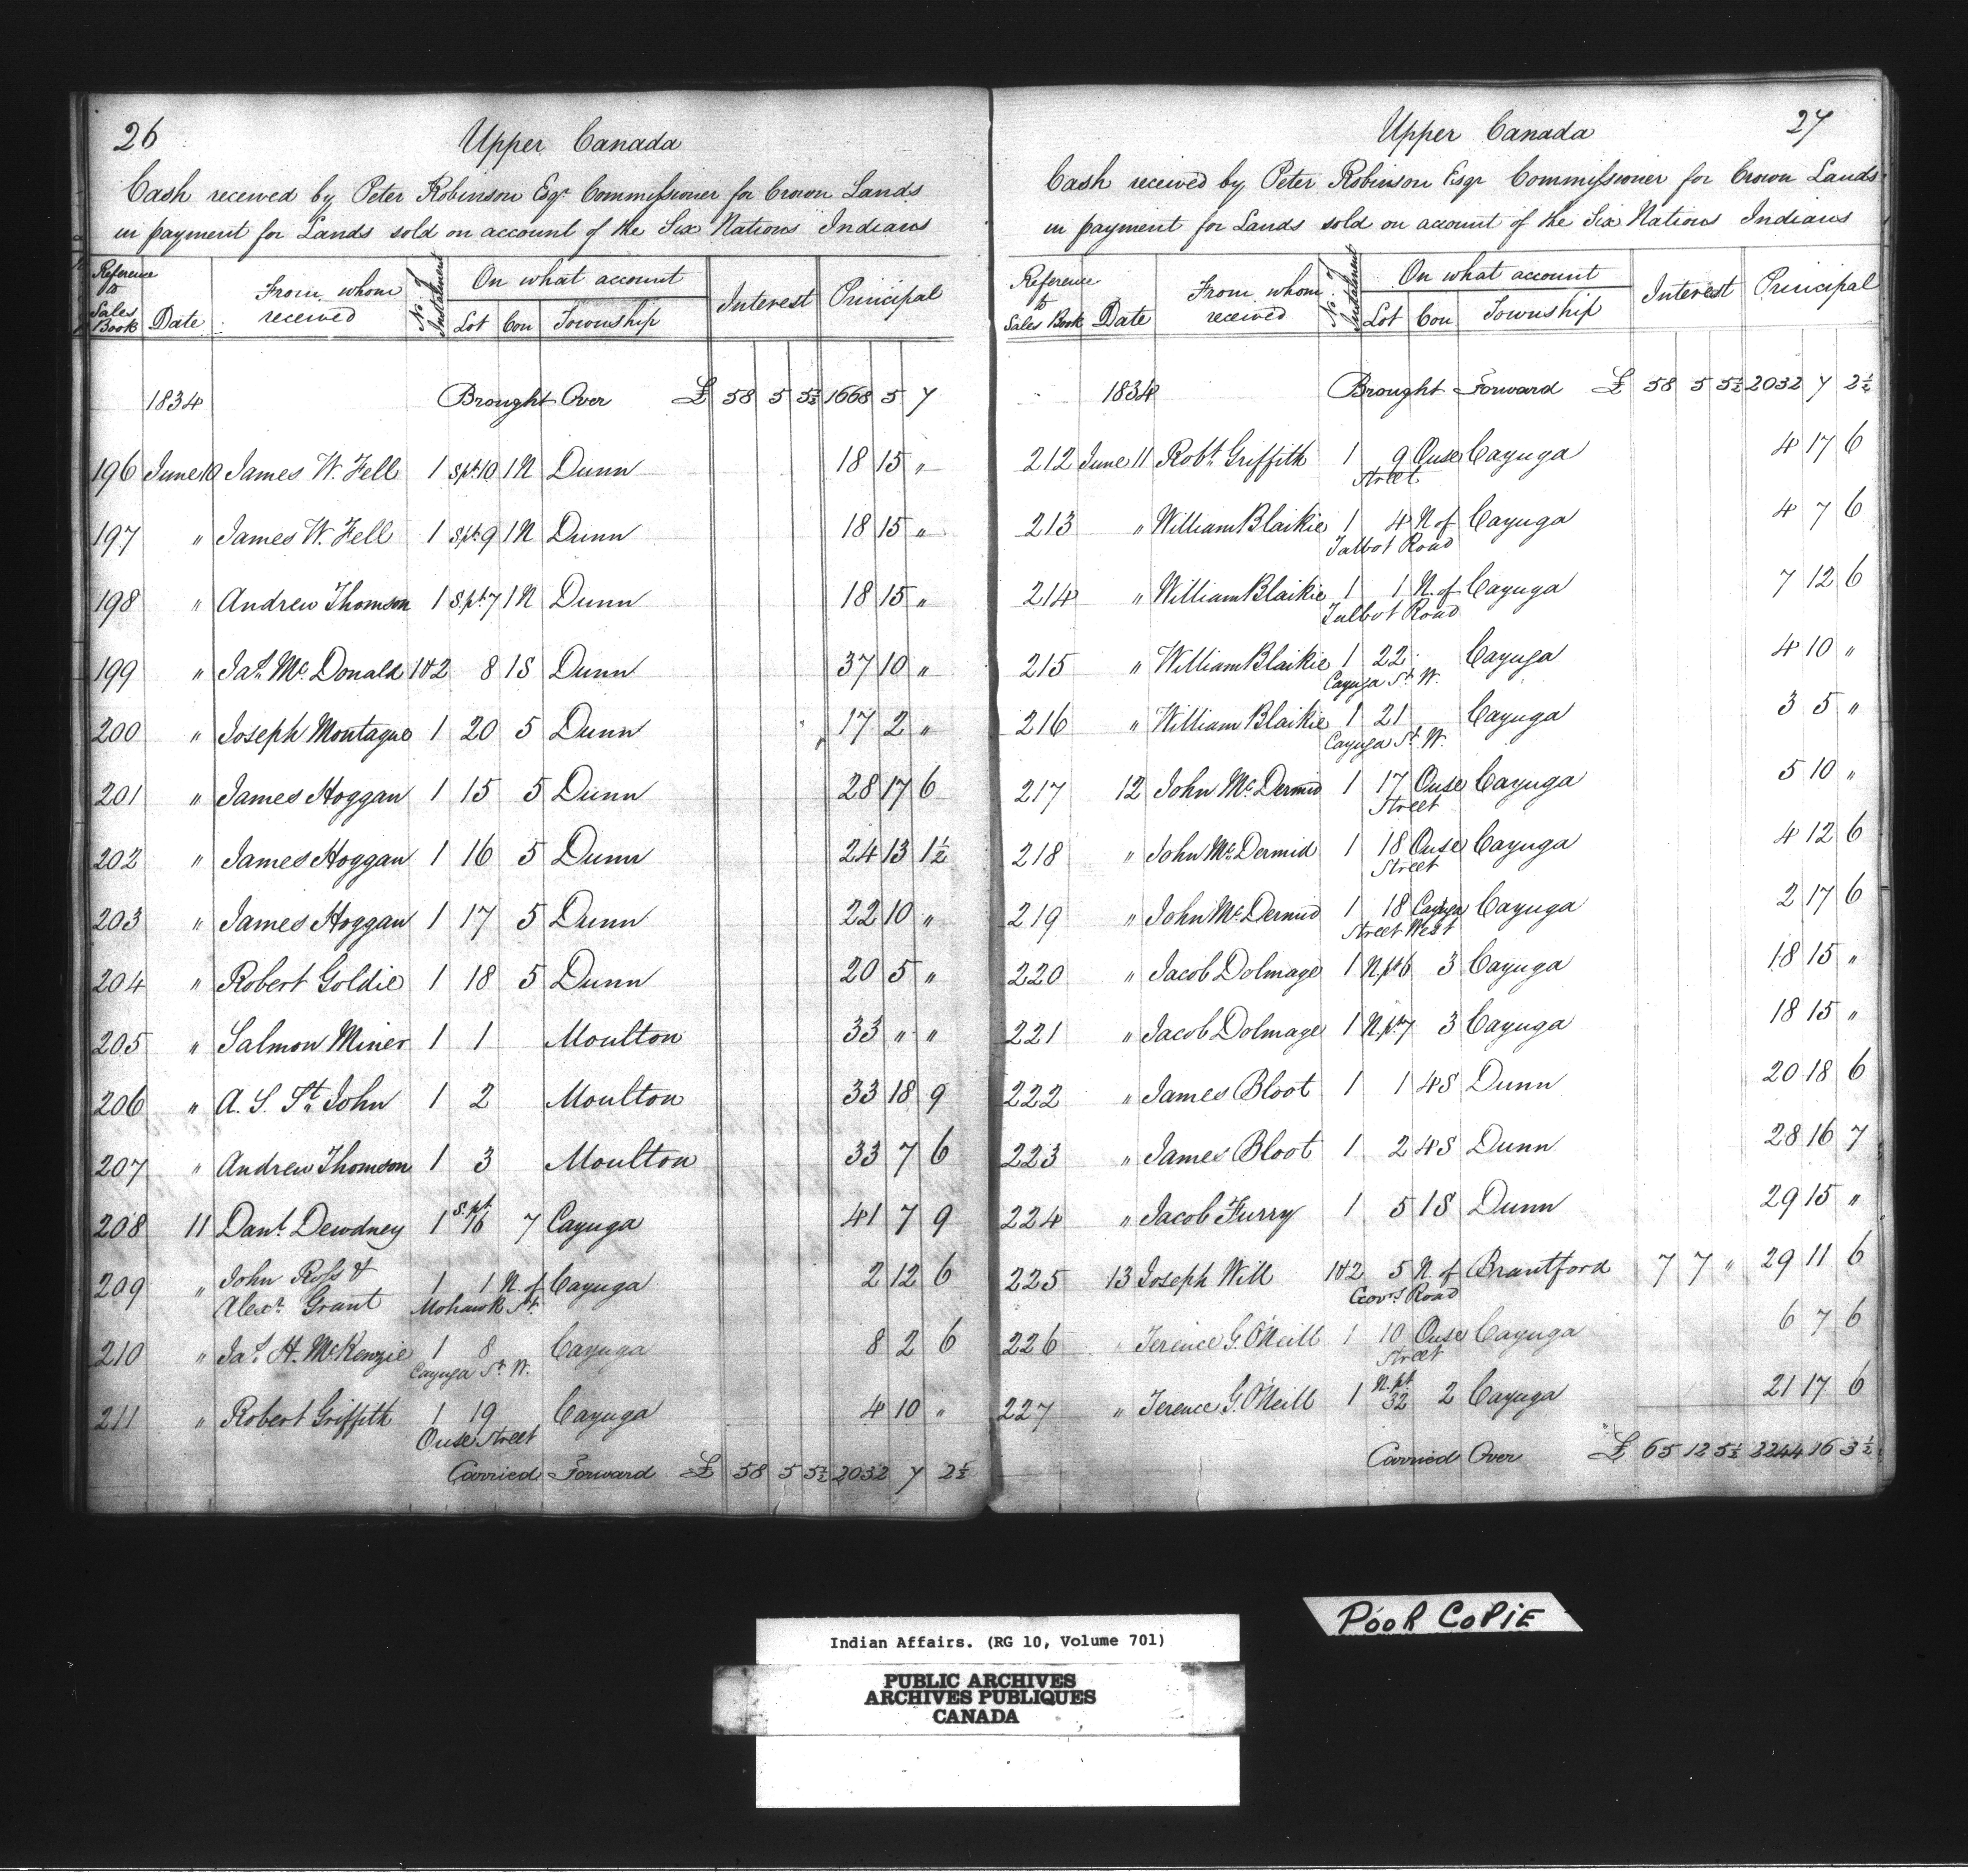 26
Upper Canada
Cash received by Peter Robinson Esqr Commissioner for Crown Lands
in payment for Lands sold on account of the Six Nations Indians
Reference to Sales Book Date From whom received No. of Instalment On what account Lot Con Township Interest Principal
1834 Brought Over £ 58 5 5½ 1668 5 7
196 June 10 James W. Fell 1 S.pt 10 1 N Dunn 18 15 "
197 " James W. Fell 1 S.pt 9 1 N Dunn 18 15 "
198 " Andrew Thomson 1 S.pt 7 1 N Dunn 18 15 "
199 " Jas. Mc.Donald 1&2 8 1 S Dunn 37 10 "
200 " Joseph Montague 1 20 5 Dunn 17 2 "
201 " James Hoggan 1 15 5 Dunn 28 17 6
202 " James Hoggan 1 16 5 Dunn 24 13 1½
203 " James Hoggan 1 17 5 Dunn 22 10 "
204 " Robert Goldie 1 18 5 Dunn 20 5 "
205 " Salmon Miner 1 1 Moulton 33 " "
206 " A. S. St. John 1 2 Moulton 33 18 9
207 " Andrew Thomson 1 3 Moulton 33 7 6
208 11 Danl. Dewdney 1 S.pt 16 7 Cayuga 41 7 9
209 " John Ross & 1 1 N. of Cayuga 2 12 6
Alexr. Grant Mohawk St.
210 " Jas. H. McKenzie 1 8 Cayuga 8 2 6
Cayuga St. W.
211 " Robert Griffith 1 19 Cayuga 4 10 "
Ouse Street
Carried Forward £ 58 5 5½ 2032 7 2½
27
Upper Canada
Cash received by Peter Robinson Esqr Commissioner for Crown Lands
in payment for Lands sold on account of the Six Nations Indians
Reference to Sales Book Date From whom received No. of Instalment On what account Lot Con Township Interest Principal
1834 Brought Forward £ 58 5 5½ 2032 7 2½
212 June 11 Robt. Griffith 1 9 Ouse Cayuga 4 17 6
Street
213 " William Blaikie 1 4 N of Cayuga 4 7 6
Talbot Road
214 " William Blaikie 1 1 N. of Cayuga 7 12 6
Talbot Road
215 " William Blaikie 1 22 Cayuga 4 10 "
Cayuga St. W.
216 " William Blaikie 1 21 Cayuga 3 5 "
Cayuga St. W.
217 12 John Mc.Dermid 1 17 Ouse Cayuga 5 10 "
Street
218 " John Mc.Dermid 1 18 Ouse Cayuga 4 12 6
Street
219 " John Mc.Dermid 1 18 Cayuga Cayuga 2 17 6
Street West
220 " Jacob Dolmage 1 N.pt 6 3 Cayuga 18 15 "
221 " Jacob Dolmage 1 N.pt 7 3 Cayuga 18 15 "
222 " James Bloot 1 1 4 S Dunn 20 18 6
223 " James Bloot 1 2 4 S Dunn 28 16 7
224 " Jacob Furry 1 5 1 S Dunn 29 15 "
225 13 Joseph Will 1&2 5 N. of Brantford 7 7 " 29 11 6
Govrs. Road
226 " Terence G. O'Neill 1 10 Ouse Cayuga 6 7 6
Street
227 " Terence G. O'Neill 1 N.pt 32 2 Cayuga 21 17 6
Carried Over £ 65 12 5½ 2244 16 3½
POOR COPIE
Indian Affairs. (RG 10, Volume 701)
PUBLIC ARCHIVES
ARCHIVES PUBLIQUES
CANADA